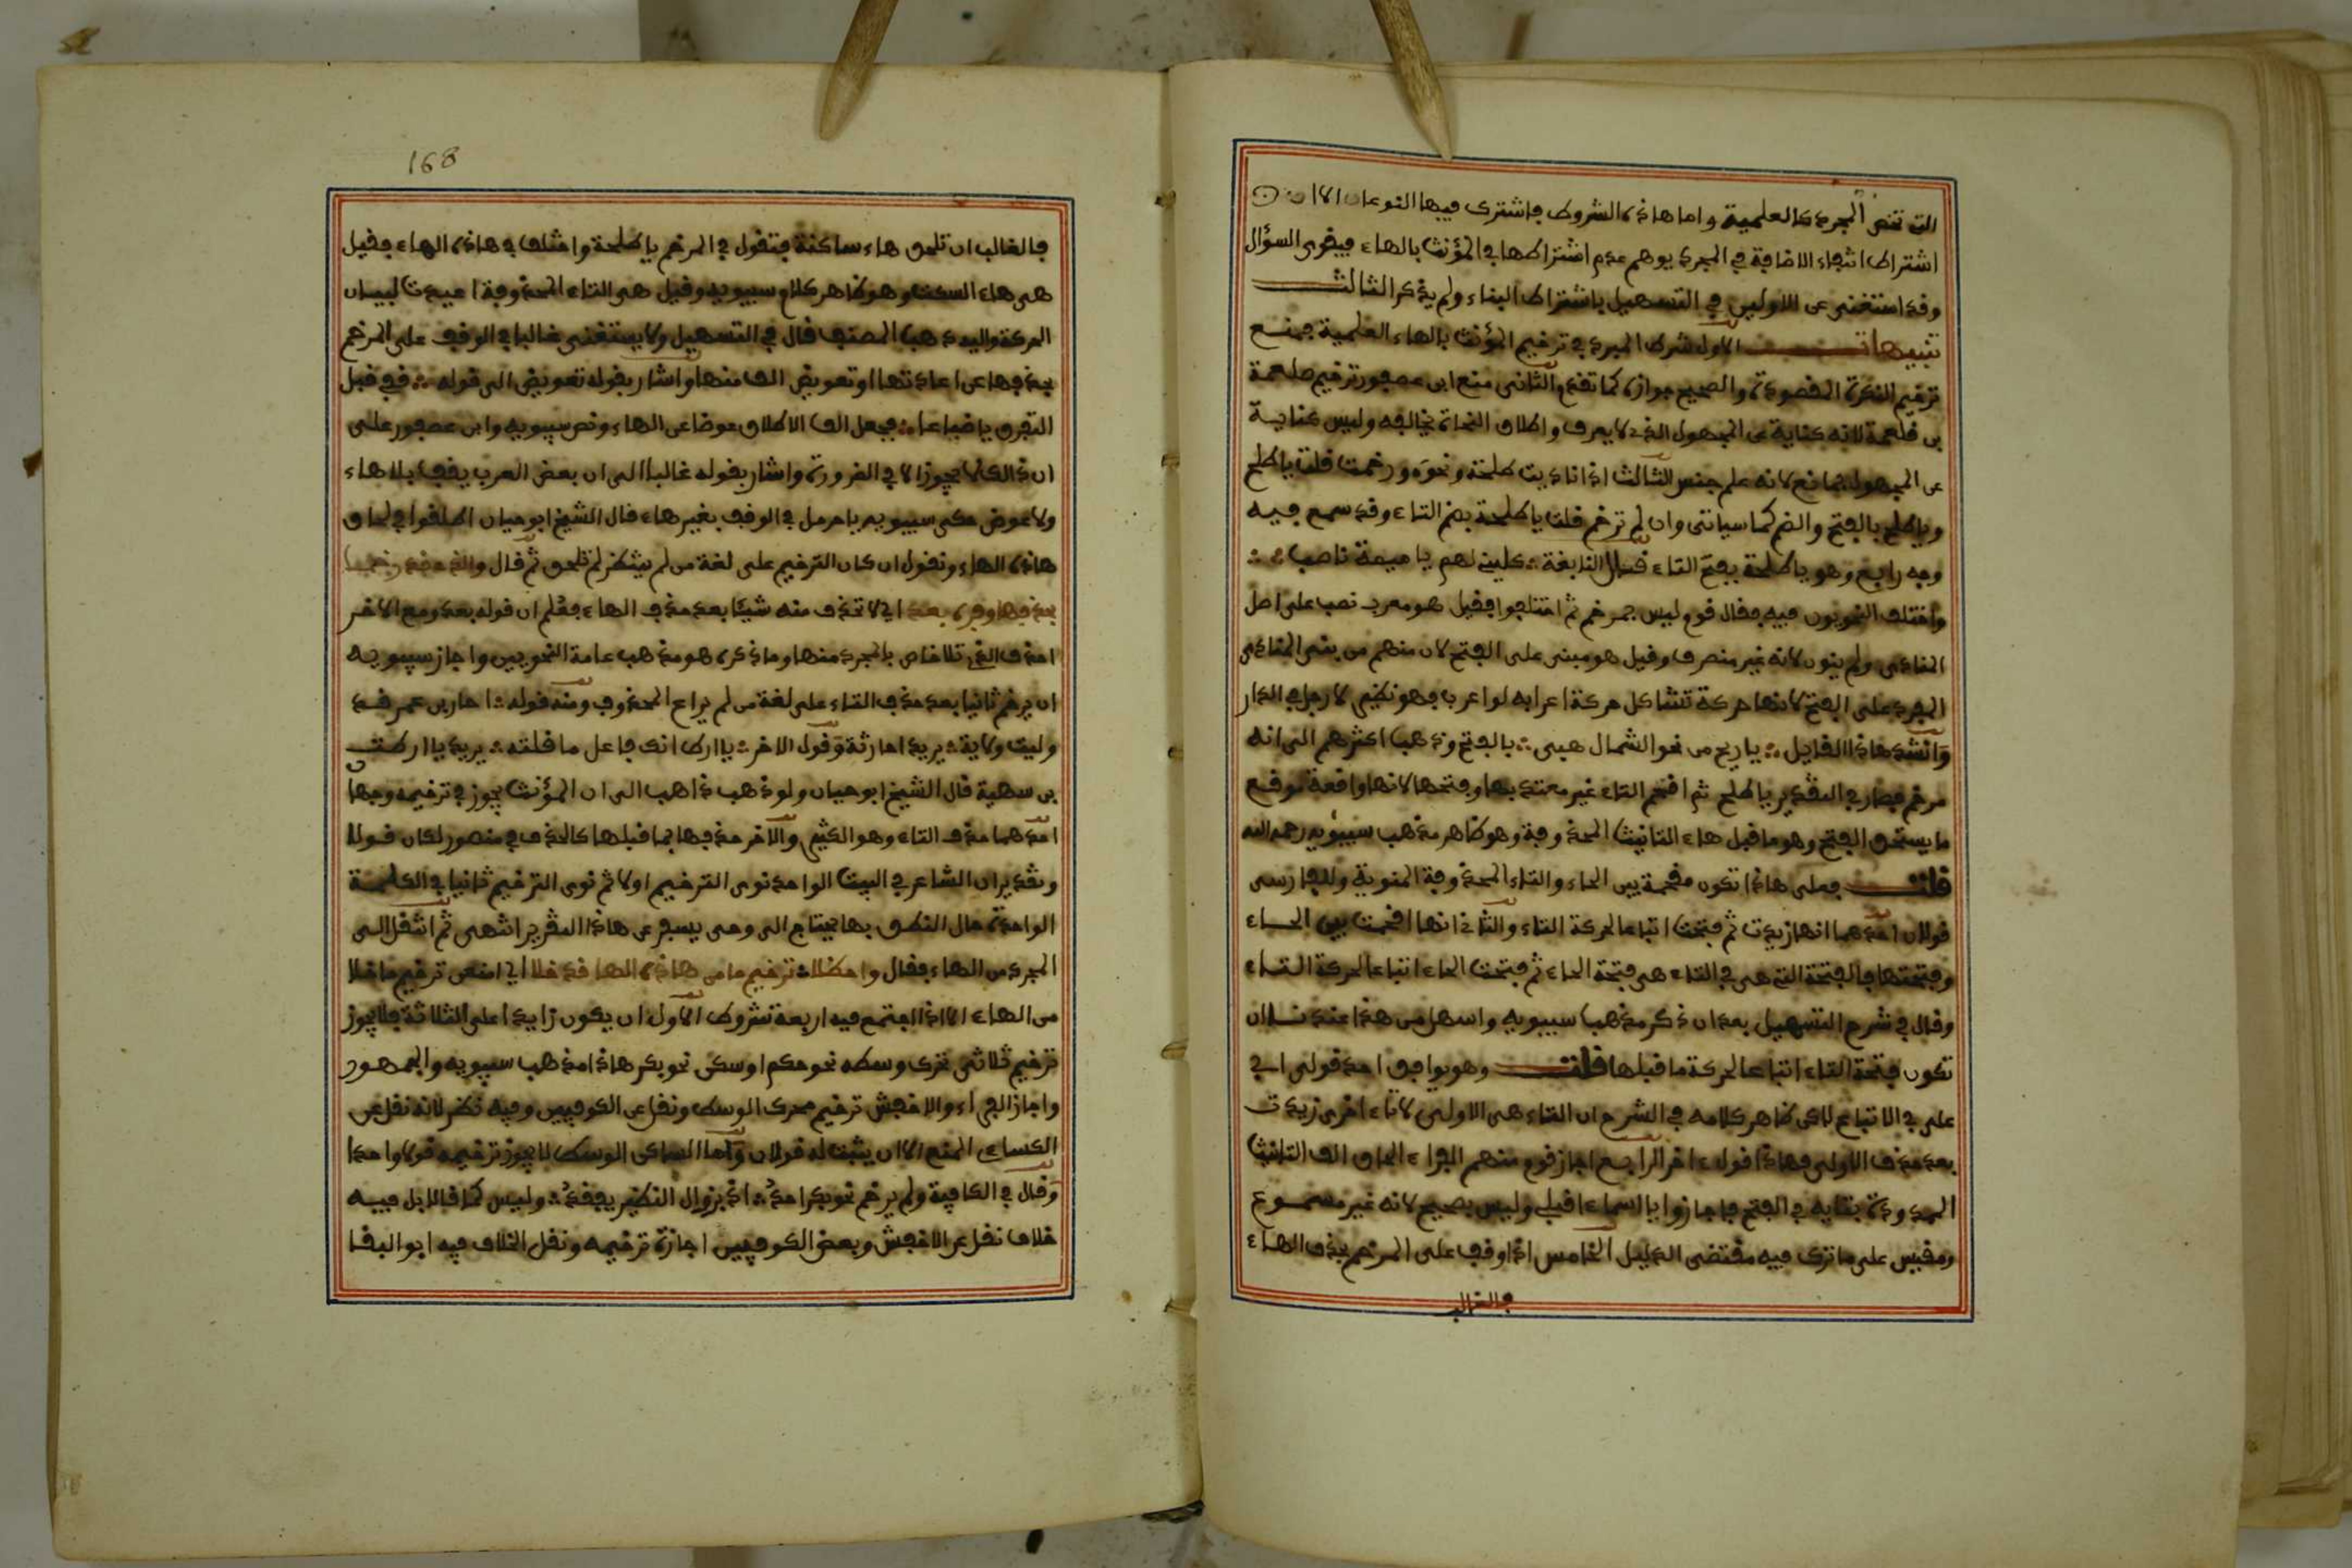 التي تخص المجرد كالعلمية واما هاذه الشروط فاشترك فيها النوعان الا ان
اشتراط انتفاء الاضافة في المجرد يوهم عدم اشتراطها في المؤنث بالهاء فيقوى السؤال
وقد استغنى عن الاولين في التسهيل باشتراط البناء ولم يذكر الثالث
تنبيهات الاول شرط المبرد في ترخيم المؤنث بالهاء العلمية فمنع
ترخيم النكرة المقصودة والصحيح جوازه كما تقدم والثاني منع ابن عصفور ترخيم صلعمة
بن قلعمة لانه كناية عن المجهول الذي لا يعرف واطلاق النحاة يخالفه وليس كناية
عن المجهول بمانع لانه علم جنس الثالث اذا ناديت طلحة ونحوه ورخمت قلت يا طلح
ويا طلح بالفتح والضم كما سياتى وان لم ترخم قلت يا طلحة بضم التاء وقد سمع فيه
وجه رابع وهو يا طلحة بفتح التاء قال النابغة كليني لهم يا اميمة ناصب
واختلف النحويون فيه فقال قوم ليس بمرخم ثم اختلفوا فقيل هو معرب نصب على اصل
المنادى ولم ينون لانه غير منصرف وقيل هو مبنى على الفتح لان منهم من يبنى المنادى
المفرد على الفتح لانها حركة تشاكل حركة اعرابه لو اعرب فهو نظير لا رجل في الدار
وانشد هاذا القايل يا ريح من نحو الشمال هبى بالفتح وذهب اكثرهم الى انه
مرخم فصار في التقدير يا طلح ثم اقحم التاء غير معتد بها وفتحها لانها واقعة موقع
ما يستحق الفتح وهو ما قبل هاء التانيث المحذوفة وهو ظاهر مذهب سيبويه رحمه الله
قلت فعلى هاذا تكون مقحمة بين الحاء والتاء المحذوفة المنوية وللفارسى
قولان احدهما انها زيدت ثم فتحت اتباعا لحركة التاء والثاني انها اقحمت بين الحاء
وفتحتها فالفتحة التي هى في التاء هى فتحة الحاء ثم فتحت الحاء اتباعا لحركة التاء
وقال في شرح التسهيل بعد ان ذكر مذهب سيبويه واسهل من هذا عندى ان
تكون فتحة التاء اتباعا لحركة ما قبلها قلت وهو يوافق احد قولى ابي
على في الاتباع لاكن ظاهر كلامه في الشرح ان التاء هى الاولى لا تاء اخرى زيدت
بعد حذف الاولى فهاذا قول ءاخر الرابع اجاز قوم منهم الفراء الحاق الف التانيث
الممدودة بتايه في الفتح فاجازوا يا اسماء اقبلى وليس بصحيح لانه غير مسموع
ومقيس على ما ترك فيه مقتضى الدليل الخامس اذا وقف على المرخم بحذف الهاء
فالغالب
168
فالغالب ان تلحق هاء ساكنة فتقول في المرخم يا طلحة واختلف في هاذه الهاء فقيل
هى هاء السكت وهو ظاهر كلام سيبويه وقيل هى التاء المحذوفة اعيدت لبيان
الحركة واليه ذهب المصنف قال في التسهيل ولا يستغنى غالبا في الوقف على المرخم
بحذفها عن اعادتها او تعويض الف منها واشار بقوله تعويض الى قوله قفي قبل
التفرق يا ضباعا فجعل الف الاطلاق عوضا عن الهاء ونص سيبويه وابن عصفور على
ان ذالك لا يجوز الا في الضرورة واشار بقوله غالبا الى ان بعض العرب يقف بلا هاء
ولا عوض حكى سيبويه يا حرمل في الوقف بغير هاء قال الشيخ ابو حيان اطلقوا في لحاق
هاذه الهاء ونقول ان كان الترخيم على لغة من لم ينتظر لم تلحق ثم قال والذي قد رخما
بحذفها وفره بعد اي لا تحذف منه شيئا بعد حذف الهاء فعلم ان قوله بعد ومع الاخر
احذف الذي تلا خاص بالمجرد منها وما ذكره هو مذهب عامة النحويين واجاز سيبويه
ان يرخم ثانيا بعد حذف التاء على لغة من لم يراع المحذوف ومنه قوله احار بن عمر قد
وليت ولاية يريد احارثة وقول الاخر يا ارط انك فاعل ما قلته يريد يا ارطت
بن سهية قال الشيخ ابو حيان ولو ذهب ذاهب الى ان المؤنث يجوز في ترخيمه وجها
احدهما حذف التاء وهو الكثير والاخر حذفها بما قبلها كالحذف في منصور لكان قولا
وتقدير ان الشاعر في البيت الواحد نوى الترخيم اولا ثم نوى الترخيم ثانيا في الكلمة
الواحدة حال النطق بها يحتاج الى وحى يسفر عن هاذا التقرير انتهى ثم انتقل الى
المجرد من الهاء فقال واحظلا ترخيم ما من هاذه الها قد خلا اي امنعن ترخيم ما خلا
من الهاء الا اذا اجتمع فيه اربعة شروط الاول ان يكون زايدا على الثلاثة فلا يجوز
ترخيم ثلاثى تحرك وسطه نحو حكم او سكن نحو بكر هاذا مذهب سيبويه والجمهور
واجاز الفراء والاخفش ترخيم محرك الوسط ونقل عن الكوفيين وفيه نظر لانه نقل عن
الكساءي المنع الا ان يثبت له قولان واما الساكن الوسط لا يجوز ترخيمه قولا واحدا
وقال في الكافية ولم يرخم نحو بكر احد اذ بزوال النظير يفقد وليس كما قال بل فيه
خلاف نقل عن الاخفش وبعض الكوفيين اجازة ترخيمه ونقل الخلاف فيه ابو البقا